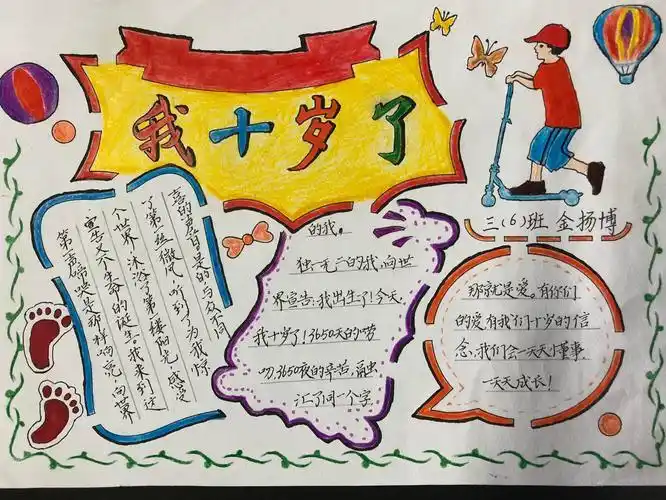 我十岁了
三(6)班 金扬博
第一声啼哭是那样响亮,向世界
宣告又一个生命的诞生。我来到这
个世界,沐浴了第一缕阳光,感受
了第一丝微风,听到了为我惊
喜的声音。是的,与众不同
的我。
独一无二的我,向世
界宣告:我出生了!今天,
我十岁了!3650天的点劳
叨,3650夜的辛苦,融
汇了同一个字.
那就是爱。有你们
的爱,有我们十岁的信
念,我们会一天天懂事
一天天成长!